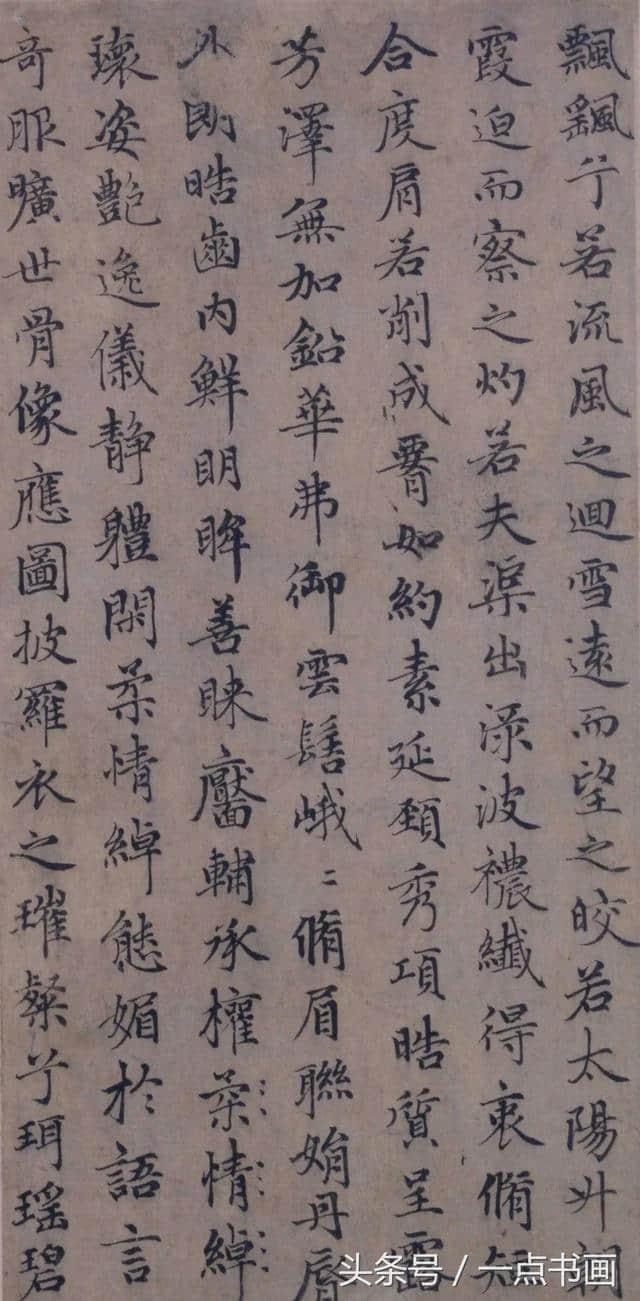 飄飖兮若流風之迴雪遠而望之皎若太陽升朝
霞迫而察之灼若夫渠出淥波襛纖得衷脩短
合度肩若削成腰如約素延頸秀項晧質呈露
芳澤無加鉛華弗御雲髻峨〻脩眉聯娟丹脣
外朗晧齒内鮮明眸善睞靨輔承權柔情綽
瓌姿艷逸儀静體閑柔情綽態媚於語言
奇服曠世骨像應圖披羅衣之璀粲兮珥瑤碧
头条号 / 一点书画